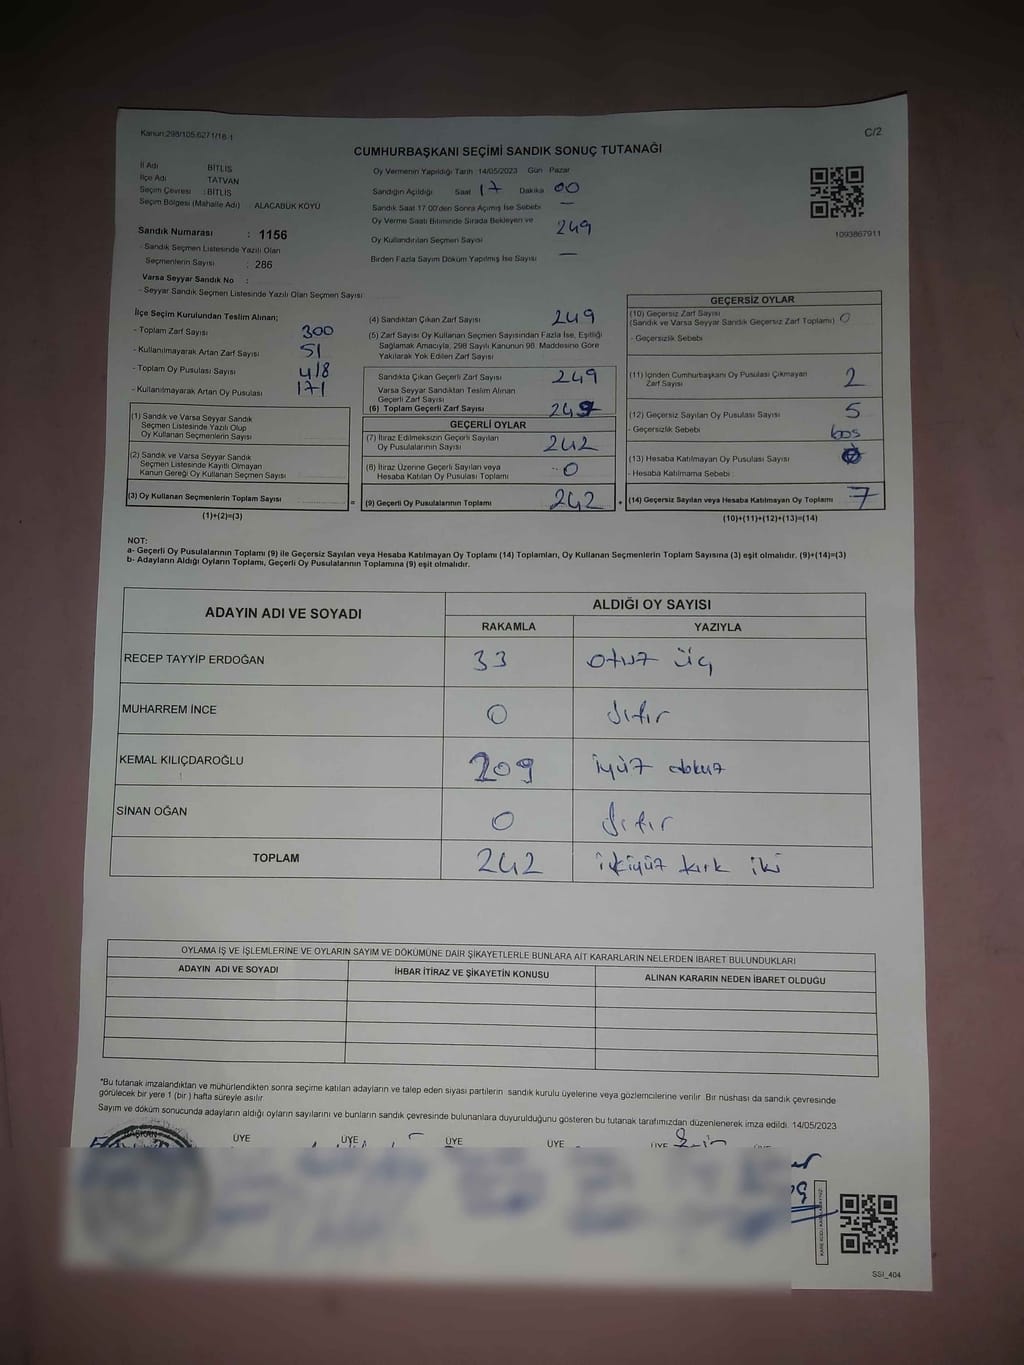 Kanun:298/105,6271/18-1
C/2
CUMHURBAŞKANI SEÇİMİ SANDIK SONUÇ TUTANAĞI
İl Adı BİTLİS
İlçe Adı TATVAN
Seçim Çevresi : BİTLİS
Seçim Bölgesi (Mahalle Adı) : ALACABÜK KÖYÜ
Sandık Numarası : 1156
- Sandık Seçmen Listesinde Yazılı Olan
Seçmenlerin Sayısı : 286
Varsa Seyyar Sandık No :
- Seyyar Sandık Seçmen Listesinde Yazılı Olan Seçmen Sayısı
Oy Vermenin Yapıldığı Tarih 14/05/2023 Gün Pazar
Sandığın Açıldığı Saat 17 Dakika 00
Sandık Saat 17.00'den Sonra Açımış İse Sebebi —
Oy Verme Saati Bitiminde Sırada Bekleyen ve
Oy Kullandırılan Seçmen Sayısı 249
Birden Fazla Sayım Döküm Yapılmış İse Sayısı —
1093867911
İlçe Seçim Kurulundan Teslim Alınan;
- Toplam Zarf Sayısı 300
- Kullanılmayarak Artan Zarf Sayısı 51
- Toplam Oy Pusulası Sayısı 418
- Kullanılmayarak Artan Oy Pusulası 171
(1) Sandık ve Varsa Seyyar Sandık
Seçmen Listesinde Yazılı Olup
Oy Kullanan Seçmenlerin Sayısı
(2) Sandık ve Varsa Seyyar Sandık
Seçmen Listesinde Kayıtlı Olmayan
Kanun Gereği Oy Kullanan Seçmen Sayısı
(3) Oy Kullanan Seçmenlerin Toplam Sayısı =
(1)+(2)=(3)
(4) Sandıktan Çıkan Zarf Sayısı 249
(5) Zarf Sayısı Oy Kullanan Seçmen Sayısından Fazla İse, Eşitliği
Sağlamak Amacıyla, 298 Sayılı Kanunun 98. Maddesine Göre
Yakılarak Yok Edilen Zarf Sayısı
Sandıkta Çıkan Geçerli Zarf Sayısı 249
Varsa Seyyar Sandıktan Teslim Alınan
Geçerli Zarf Sayısı
(6) Toplam Geçerli Zarf Sayısı 249
GEÇERLİ OYLAR
(7) İtiraz Edilmeksizin Geçerli Sayılan
Oy Pusulalarının Sayısı 242
(8) İtiraz Üzerine Geçerli Sayılan veya
Hesaba Katılan Oy Pusulası Toplamı 0
(9) Geçerli Oy Pusulalarının Toplamı 242 +
GEÇERSİZ OYLAR
(10) Geçersiz Zarf Sayısı
(Sandık ve Varsa Seyyar Sandık Geçersiz Zarf Toplamı) 0
- Geçersizlik Sebebi
(11) İçinden Cumhurbaşkanı Oy Pusulası Çıkmayan
Zarf Sayısı 2
(12) Geçersiz Sayılan Oy Pusulası Sayısı 5
- Geçersizlik Sebebi boş
(13) Hesaba Katılmayan Oy Pusulası Sayısı
- Hesaba Katılmama Sebebi
(14) Geçersiz Sayılan veya Hesaba Katılmayan Oy Toplamı 7
(10)+(11)+(12)+(13)=(14)
NOT:
a- Geçerli Oy Pusulalarının Toplamı (9) ile Geçersiz Sayılan veya Hesaba Katılmayan Oy Toplamı (14) Toplamları, Oy Kullanan Seçmenlerin Toplam Sayısına (3) eşit olmalıdır. (9)+(14)=(3)
b- Adayların Aldığı Oyların Toplamı, Geçerli Oy Pusulalarının Toplamına (9) eşit olmalıdır.
ADAYIN ADI VE SOYADI ALDIĞI OY SAYISI
RAKAMLA YAZIYLA
RECEP TAYYİP ERDOĞAN 33 otuz üç
MUHARREM İNCE 0 sıfır
KEMAL KILIÇDAROĞLU 209 iyüz dokuz
SİNAN OĞAN 0 sıfır
TOPLAM 242 ikiyüz kırk iki
OYLAMA İŞ VE İŞLEMLERİNE VE OYLARIN SAYIM VE DÖKÜMÜNE DAİR ŞİKAYETLERLE BUNLARA AİT KARARLARIN NELERDEN İBARET BULUNDUKLARI
ADAYIN ADI VE SOYADI İHBAR İTİRAZ VE ŞİKAYETİN KONUSU ALINAN KARARIN NEDEN İBARET OLDUĞU
*Bu tutanak imzalandıktan ve mühürlendikten sonra seçime katılan adayların ve talep eden siyasi partilerin sandık kurulu üyelerine veya gözlemcilerine verilir. Bir nüshası da sandık çevresinde
görülecek bir yere 1 (bir) hafta süreyle asılır.
Sayım ve döküm sonucunda adayların aldığı oyların sayılarını ve bunların sandık çevresinde bulunanlara duyurulduğunu gösteren bu tutanak tarafımızdan düzenlenerek imza edildi. 14/05/2023
BAŞKAN ÜYE ÜYE ÜYE ÜYE ÜYE ÜYE
SSI_404